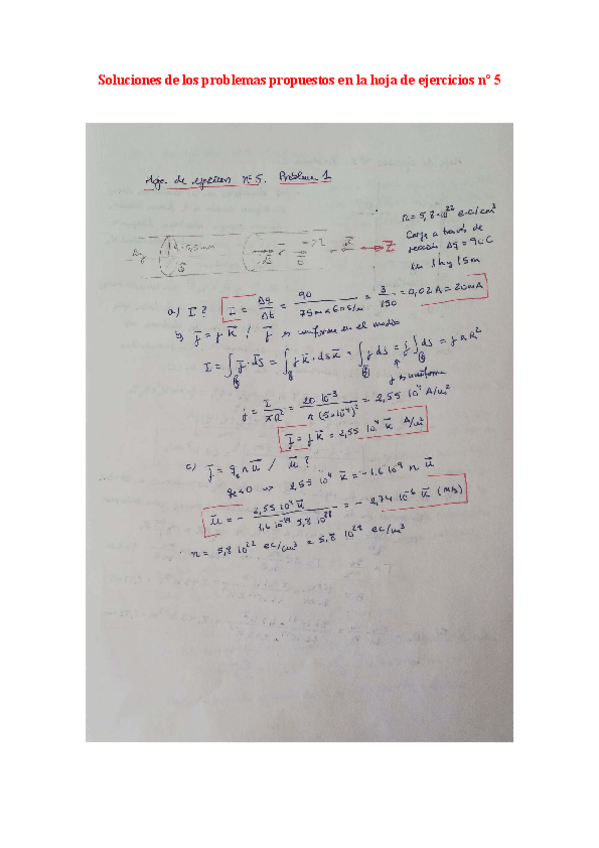 Soluciones de los problemas propuestos en la hoja de ejercicios nº 5
Hoja de ejercicios nº 5. Problema 1
n = 5,8·10²² e.c/cm³
Carga a través de
sección Δq = 90 C
en 1h y 15m
R = 0,5mm
Z
a) I? I = Δq/Δt = 90/(75m×60s/m) = 3/150 = 0,02A = 20mA
b) j⃗ = j k⃗ / j⃗ es uniforme en el medio
I = ∫ j⃗·ds⃗ = ∫ j k⃗·ds k⃗ = ∫ j ds = j ∫ ds = j π R²
j es uniforme
j = I/πR² = 20 10⁻³/π(5×10⁻⁴)² = 2,55 10⁴ A/m²
j⃗ = j k⃗ = 2,55 10⁴ k⃗ A/m²
c) j⃗ = qₑ n u⃗ / u⃗ ?
qₑ<0 => 2,55 10⁴ k⃗ = -1,6 10⁻¹⁹ n u⃗
u⃗ = - 2,55 10⁴ k⃗/1,6 10⁻¹⁹ 5,8 10²⁸ = - 2,74 10⁻⁶ k⃗ (m/s)
n = 5,8 10²² ec/cm³ = 5,8 10²⁸ ec/m³